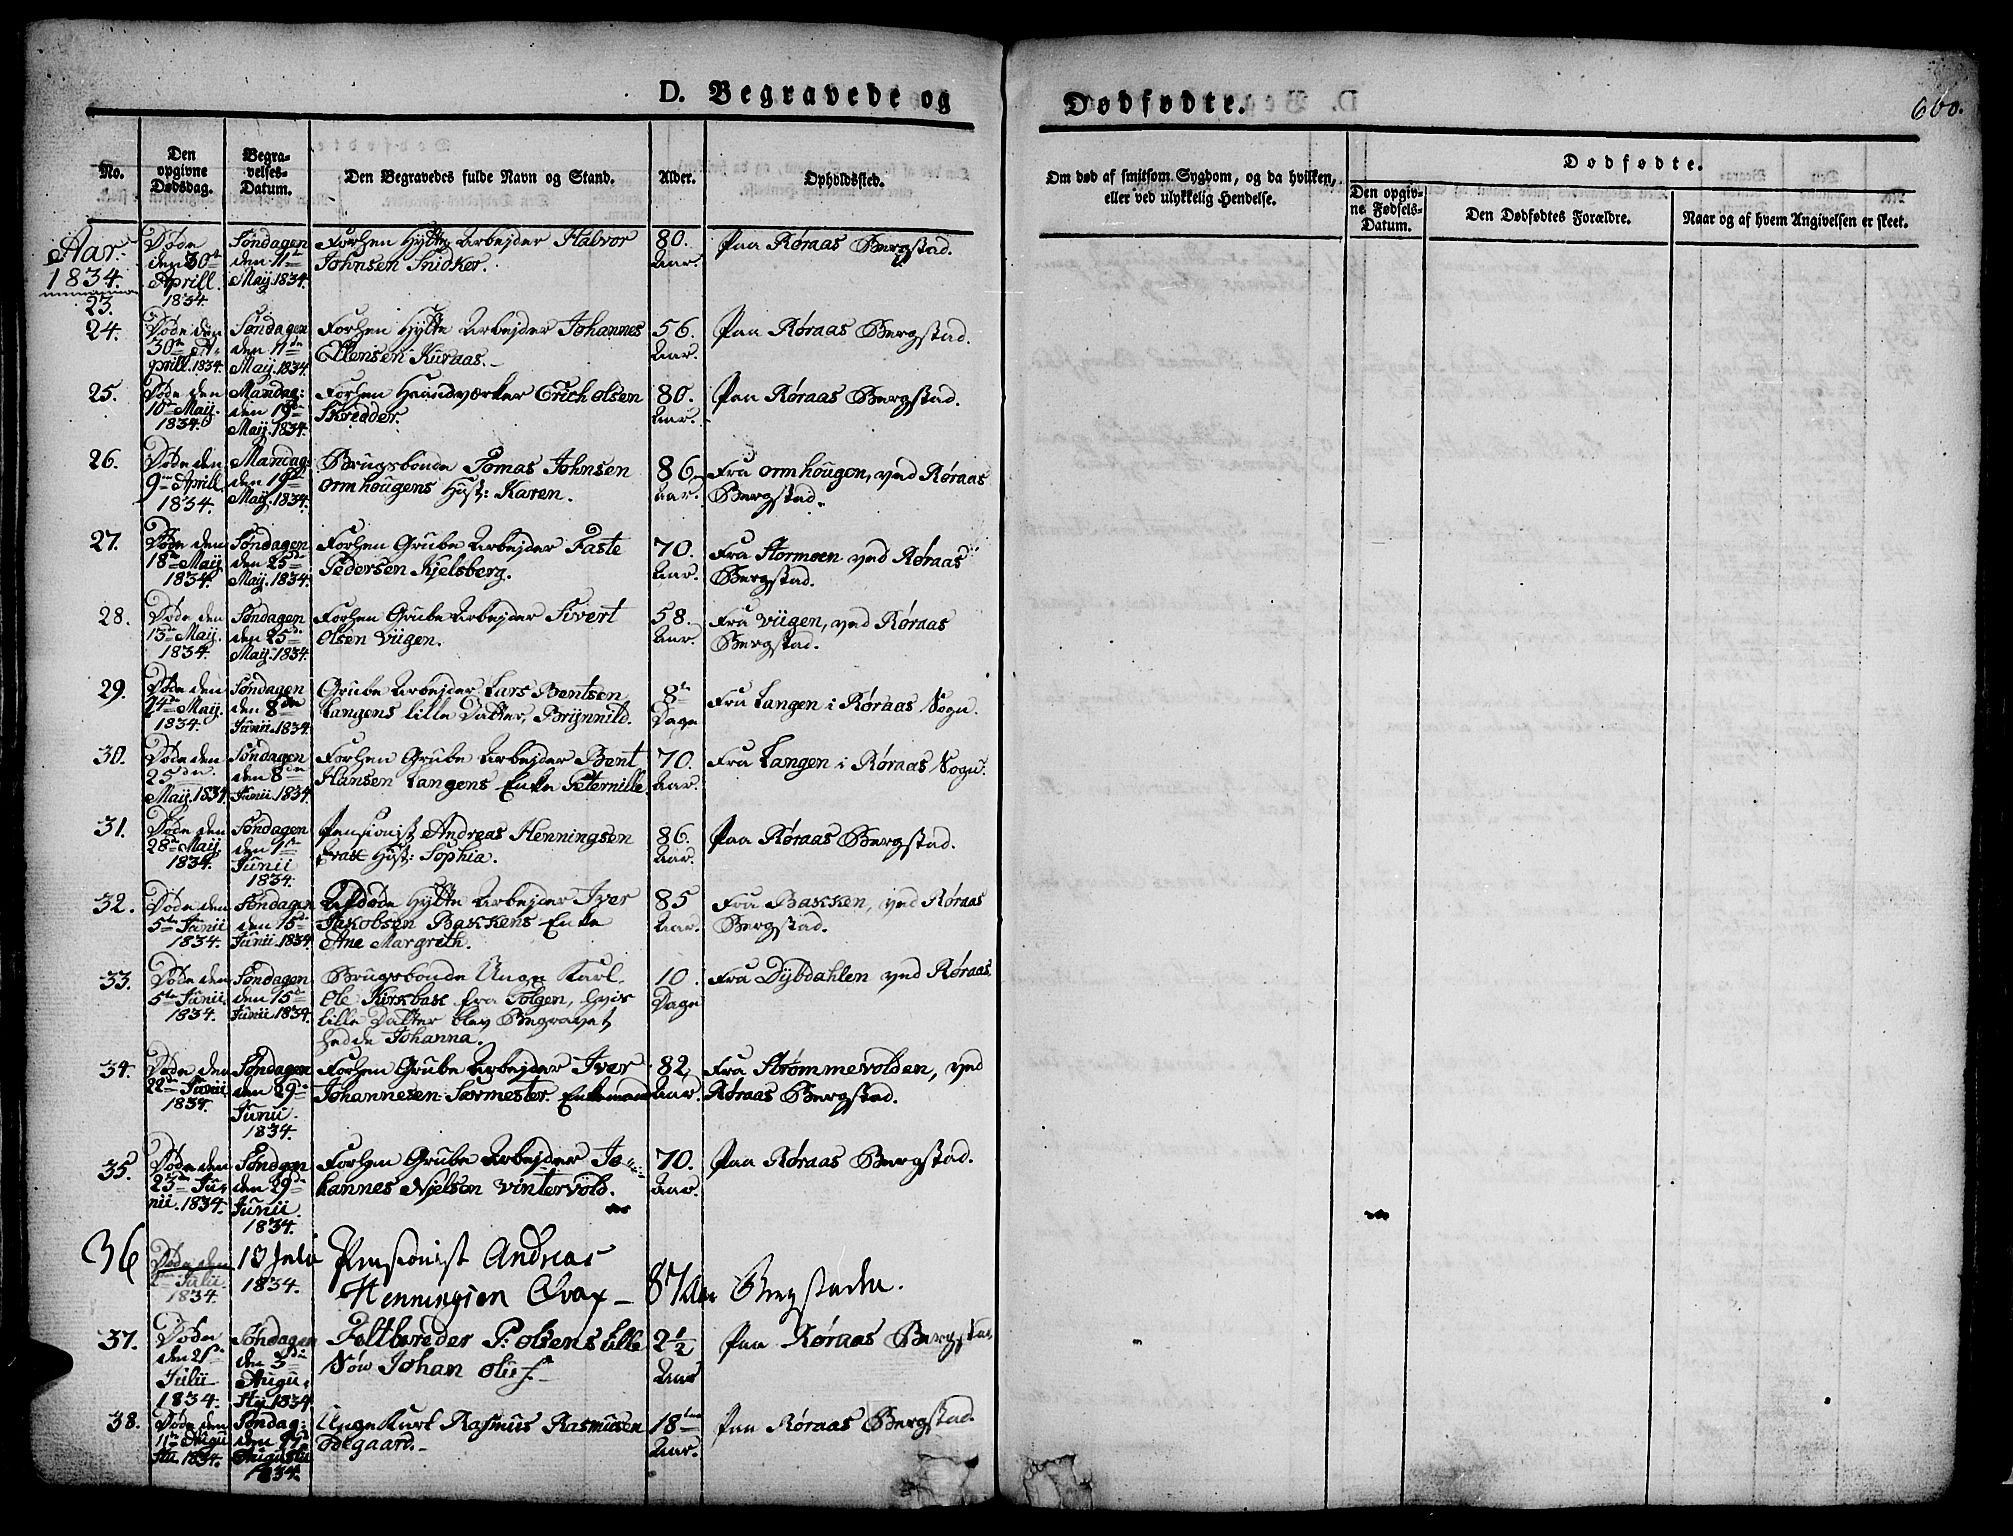 D. Begravede og
Dødfødte.
660.
No.
Den opgivne Dødsdag.
Begravelses-Datum.
Den Begravedes fulde Navn og Stand.
Alder.
Opholdssted.
Om død af smitsom Sygdom, og da hvilken,
eller ved ulykkelig Hendelse.
Dødfødte.
Den opgivne Fødsels-Datum.
Den Dødfødtes Forældre.
Naar og af hvem Angivelsen er skeet.
Aar
1834.
23.
Døde den 30te Aprill. 1834.
Søndagen den 11te Maij. 1834.
Forhen Hytte Arbejder Halvor
Johnsen Snidker.
80. Aar.
Paa Røraas Bergstad.
24.
Døde den 30te Aprill. 1834.
Søndagen den 11te Maij. 1834.
Forhen Hytte Arbejder Johannes
Ellensen Kuraas.
56. Aar.
Paa Røraas Bergstad.
25.
Døde den 10de Maij. 1834.
Mandag: den 19de Maij. 1834.
Forhen Haandværker Erich Olsen
Skredder.
80. Aar.
Paa Røraas Bergstad.
26.
Døde den 9de Aprill. 1834.
Mandag: den 19de Maij. 1834.
Brugsbonde Tomas Johnsen
Ormhougens Hust: Karen.
86. Aar.
Fra Ormhougen, ved Røraas
Bergstad.
27.
Døde den 18de Maij 1834.
Søndagen den 25de Maij. 1834.
Forhen Grube Arbejder Faste
Pedersen Kjelsberg.
70. Aar.
Fra Stormoen ved Røraas
Bergstad.
28.
Døde den 13de Maij. 1834.
Søndagen den 25de Maij. 1834.
Forhen Grube Arbejder Sivert
Olsen Viigen.
58. Aar.
Fra Viigen, ved Røraas
Bergstad.
29.
Døde den 24de Maij. 1834.
Søndagen den 8de Junii. 1834.
Grube Arbejder Lars Bentsen
Langens lille Datter, Brynnild.
8te Dage
Fra Langen i Røraas Sogn.
30.
Døde den 25de Maij. 1834.
Søndagen den 8de Junii. 1834.
Forhen Grube Arbejder Bent
Hansen Langens Enke Peternille.
70. Aar.
Fra Langen i Røraas Sogn.
31.
Døde den 28de Maij 1834.
Søndagen den 1ste Junii 1834.
Pensionist Andreas Henningsen
Hust: Sophia.
86. Aar.
Paa Røraas Bergstad.
32.
Døde den 5te Junii 1834.
Søndagen den 15de Junii. 1834.
Afdøde Hytte Arbejder Iver
Jakobsen Bakkens Enke
Ane Margreth.
85 Aar.
Fra Bakken, ved Røraas
Bergstad.
33.
Døde den 5te Junii. 1834.
Søndagen den 15de Junii. 1834.
Brugsbonde Unge Karl.
Ole Kirkbak fra Tolgen, hvis
lille Datter blev Begravet
hedde Johanna.
10. Dage
Fra Dybdahlen ved Røraas.
34.
Døde den 22de Junii 1834.
Søndagen den 29de Junii. 1834.
Forhen Grube Arbejder Iver
Johannesen Sarmester. Enkemand
82 Aar.
Fra Strømmevolden, ved
Røraas Bergstad.
35.
Døde den 23de Junii. 1834.
Søndagen den 29de Junii. 1834.
Forhen Grube Arbejder Jo-
hannes Njelsen Vintervold.
70. Aar.
Paa Røraas Bergstad.
36
Døde den Julii. 1834.
13 Juli 1834.
Pensionist Andreas
Henningsen Qvax
87 Aar
Bergstaden.
37.
Døde den 21de Julii 1834.
Søndagen den 3de Augustij 1834.
Feltbereder P: Olsens Lille
Søn Johan Oluf.
2 1/2 Aar
Paa Røraas Bergstad.
38.
Døde den 11te Augustii 1834.
Søndag: den 17de Augustii 1834.
Unge Karl Rasmus Rasmusen
Ødegaard.
18ten Aar.
Paa Røraas Bergstad.